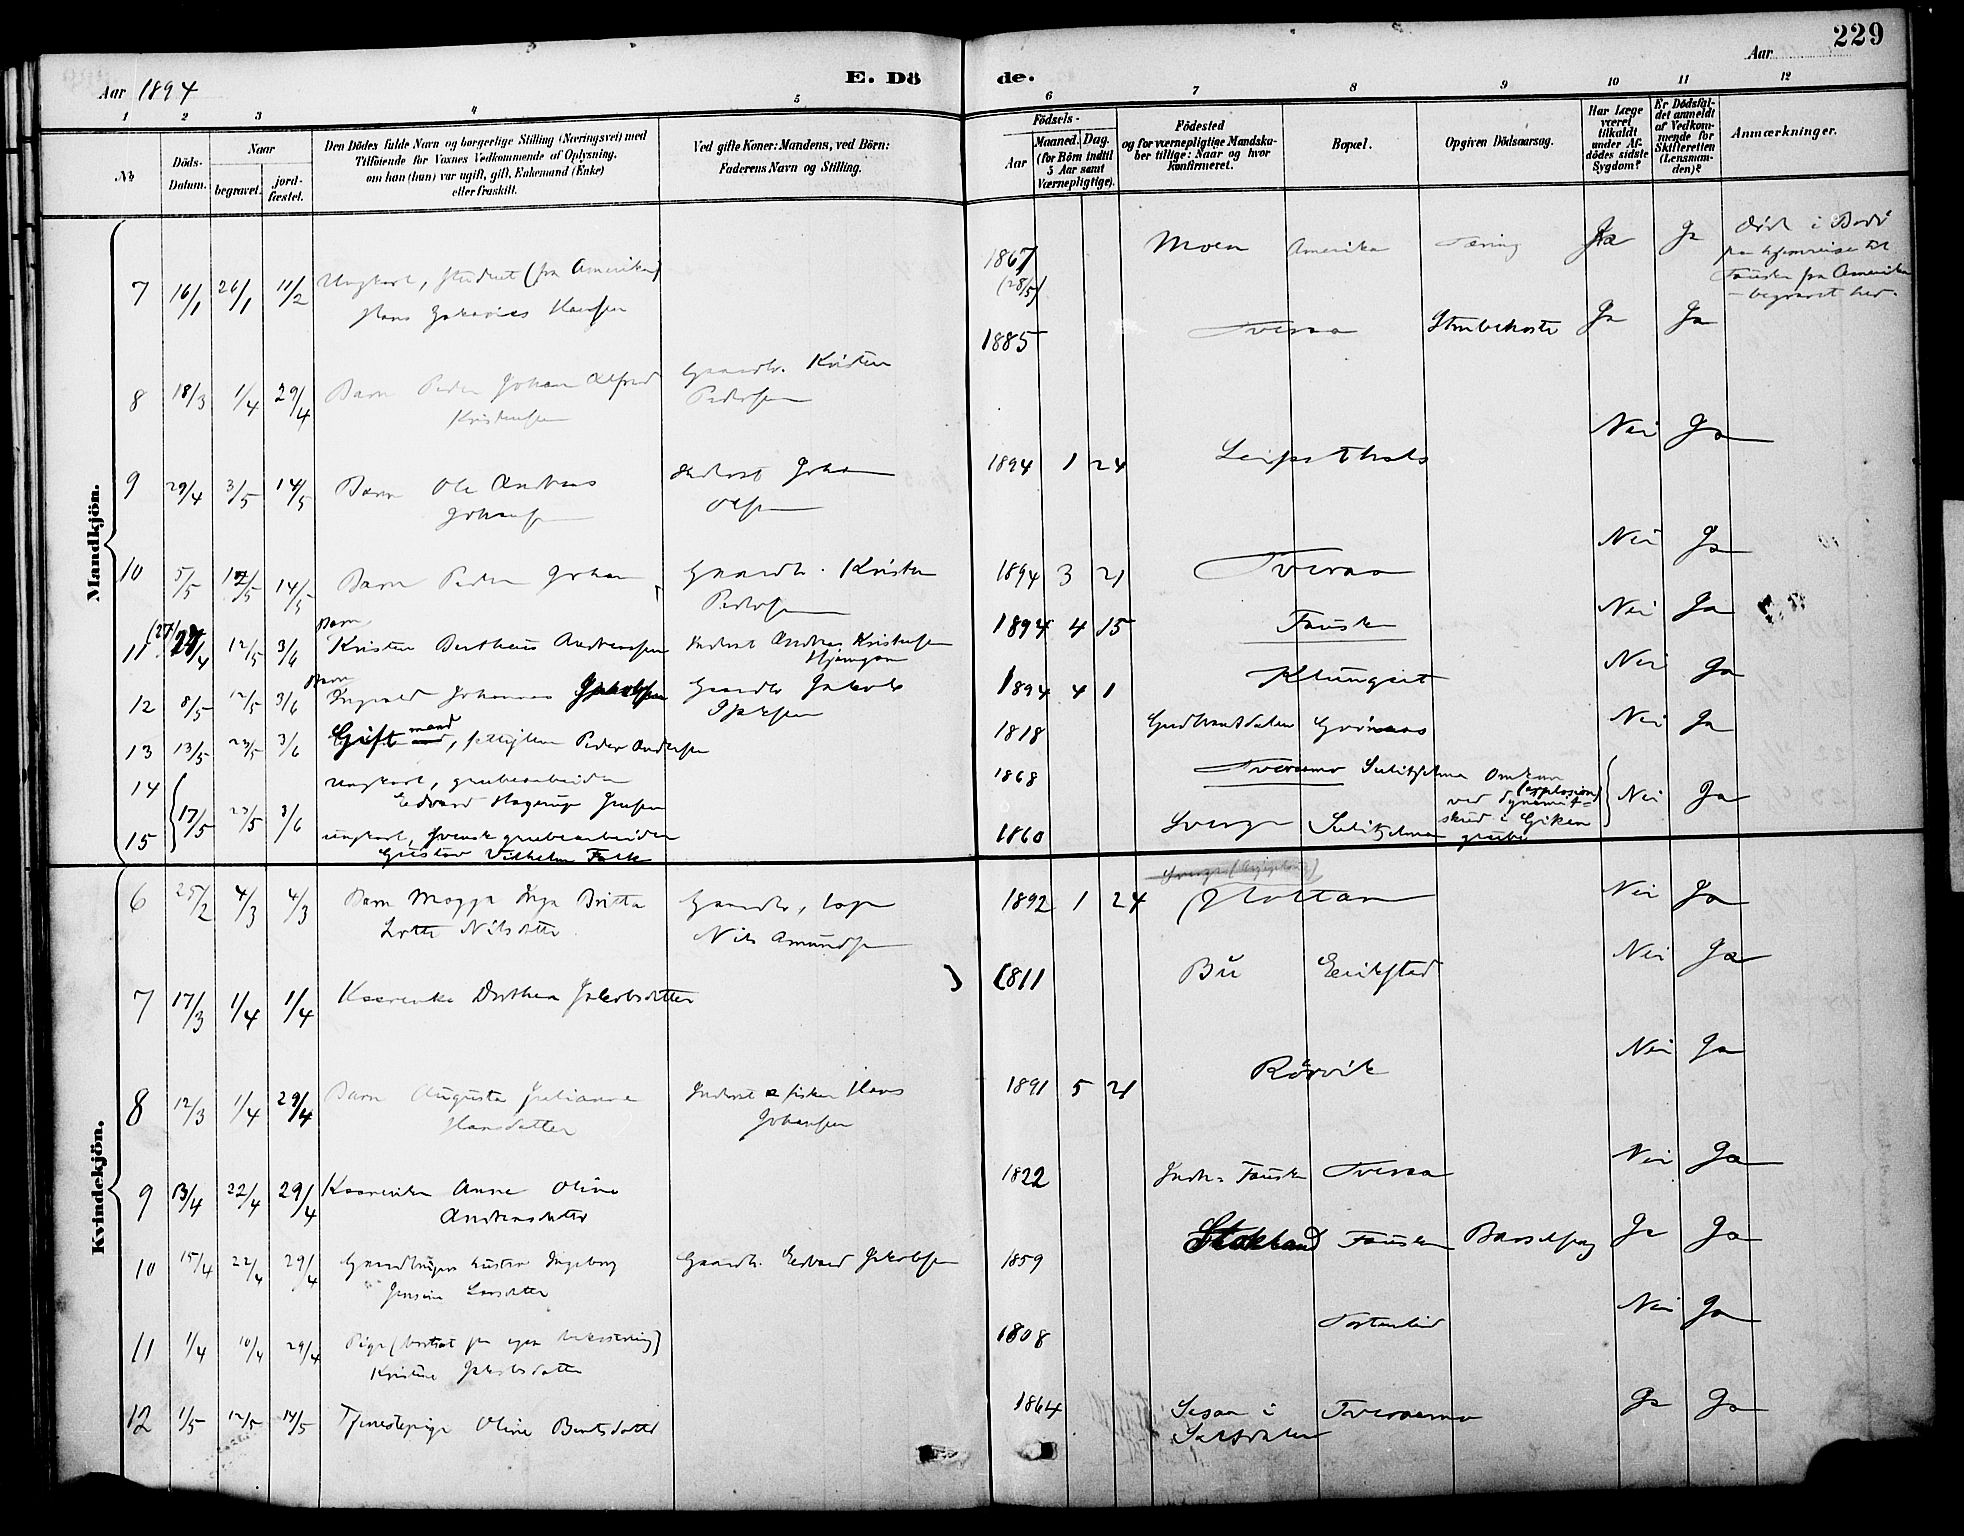 229
Aar 1894
E. Dö
de.
Aar
1 2 3 4 5 6 7 8 9 10 11 12
№
Döds-
Datum.
Naar
begravet.
jord-
fæstet.
Den Dödes fulde Navn og borgerlige Stilling (Næringsvei) med
Tilföiende for Voxnes Vedkommende af Oplysning,
om han (hun) var ugift, gift, Enkemand (Enke)
eller fraskilt.
Ved gifte Koner: Mandens, ved Börn:
Faderens Navn og Stilling.
Födsels-
Aar
Maaned. Dag.
(for Börn indtil
5 Aar samt
Værnepligtige).
Födested
og for værnepligtige Mandska-
ber tillige: Naar og hvor
konfirmeret.
Bopæl.
Opgiven Dödsaarsag.
Har Læge
været
tilkaldt
under Af-
dödes sidste
Sygdom?
Er Dödsfal-
det anmeldt
af Vedkom-
mende for
Skifteretten
(Lensman-
den)?
Anmærkninger.
Mandkjön.
7 16/1 26/1 11/2 Ungkarl, Student (fra Amerika)
Hans Zakarias Hansen
1867
(28/5)
Moen Amerika Tæring Ja Ja Död i Bodö
paa hjemreise til
Fauske fra Amerika
- begravet her.
8 18/3 1/4 29/4 Barn Peder Johan Alfred
Kristensen
Gaardbr. Kristen
Pedersen
1885 Tveraa Strubehoste Ja Ja
9 29/4 3/5 14/5 Barn Ole Andreas
Johansen
Inderst Johan
Olsen
1894 1 24 Nei Ja
10 5/5 12/5 14/5 Barn Peder Johan
Gaardbr. Kristen
Pedersen
1894 3 21 Tveraa Nei Ja
11 (27/ 27/4 12/5 3/6 Barn
Kristen Bertheus Andreassen
Inderst Andreas Kristensen
1894 4 15 Fauske Nei Ja
12 8/5 12/5 3/6 Barn
Ingvald Johannes Jakobsen
Gaardbr Jakob
1894 4 1 Klungset Nei Ja
13 13/5 23/5 3/6 Gift mand, Peder Andersen
1818 Gudbrandsdalen Nei Ja
14 ungkarl, grubearbeider
Edvard Hagerup Jensen
1868 Tveraamo Sulitjelma Omkom
(explosion)
ved dynamit-
skud i Giken
grube
Nei Ja
15 17/5 23/5 3/6 ungkarl, svensk grubearbeider
Gustav Vilhelm Falk
1860 Sverige Sulitjelma
Kvindekjön.
6 25/2 4/3 4/3 Barn Magga Inga Britta
Lotte Nilsdatter
Gaardbr, lap
Nils Amundsen
1892 1 24 Nei Ja
7 17/3 1/4 1/4 Kaarenke Dorthea Jakobsdatter
1811 Bu Erikstad Nei Ja
8 12/3 1/4 29/4 Barn Augusta Julianne
Hansdatter
Inderst & fisker Hans
Johansen
1891 5 21 Rörvik Nei Ja
9 13/4 22/4 29/4 Kaarenke Anne Oline
Andreasdatter
1822 Indre Fauske Tveraa Nei Ja
10 15/4 22/4 29/4 Gaardbruger hustru Ingeborg
Jensine Larsdatter
Gaardbr. Edvard Jakobsen
1859 Stokland Fauske Barselseng Ja Ja
11 1/4 10/4 29/4 Pige
Kristine Jakobsdatter
1808 Nei Ja
12 1/5 12/5 14/5 Tjenestepige Oline Bentsdatter
1864 i
Saltdalen
Tveraamo Ja Ja